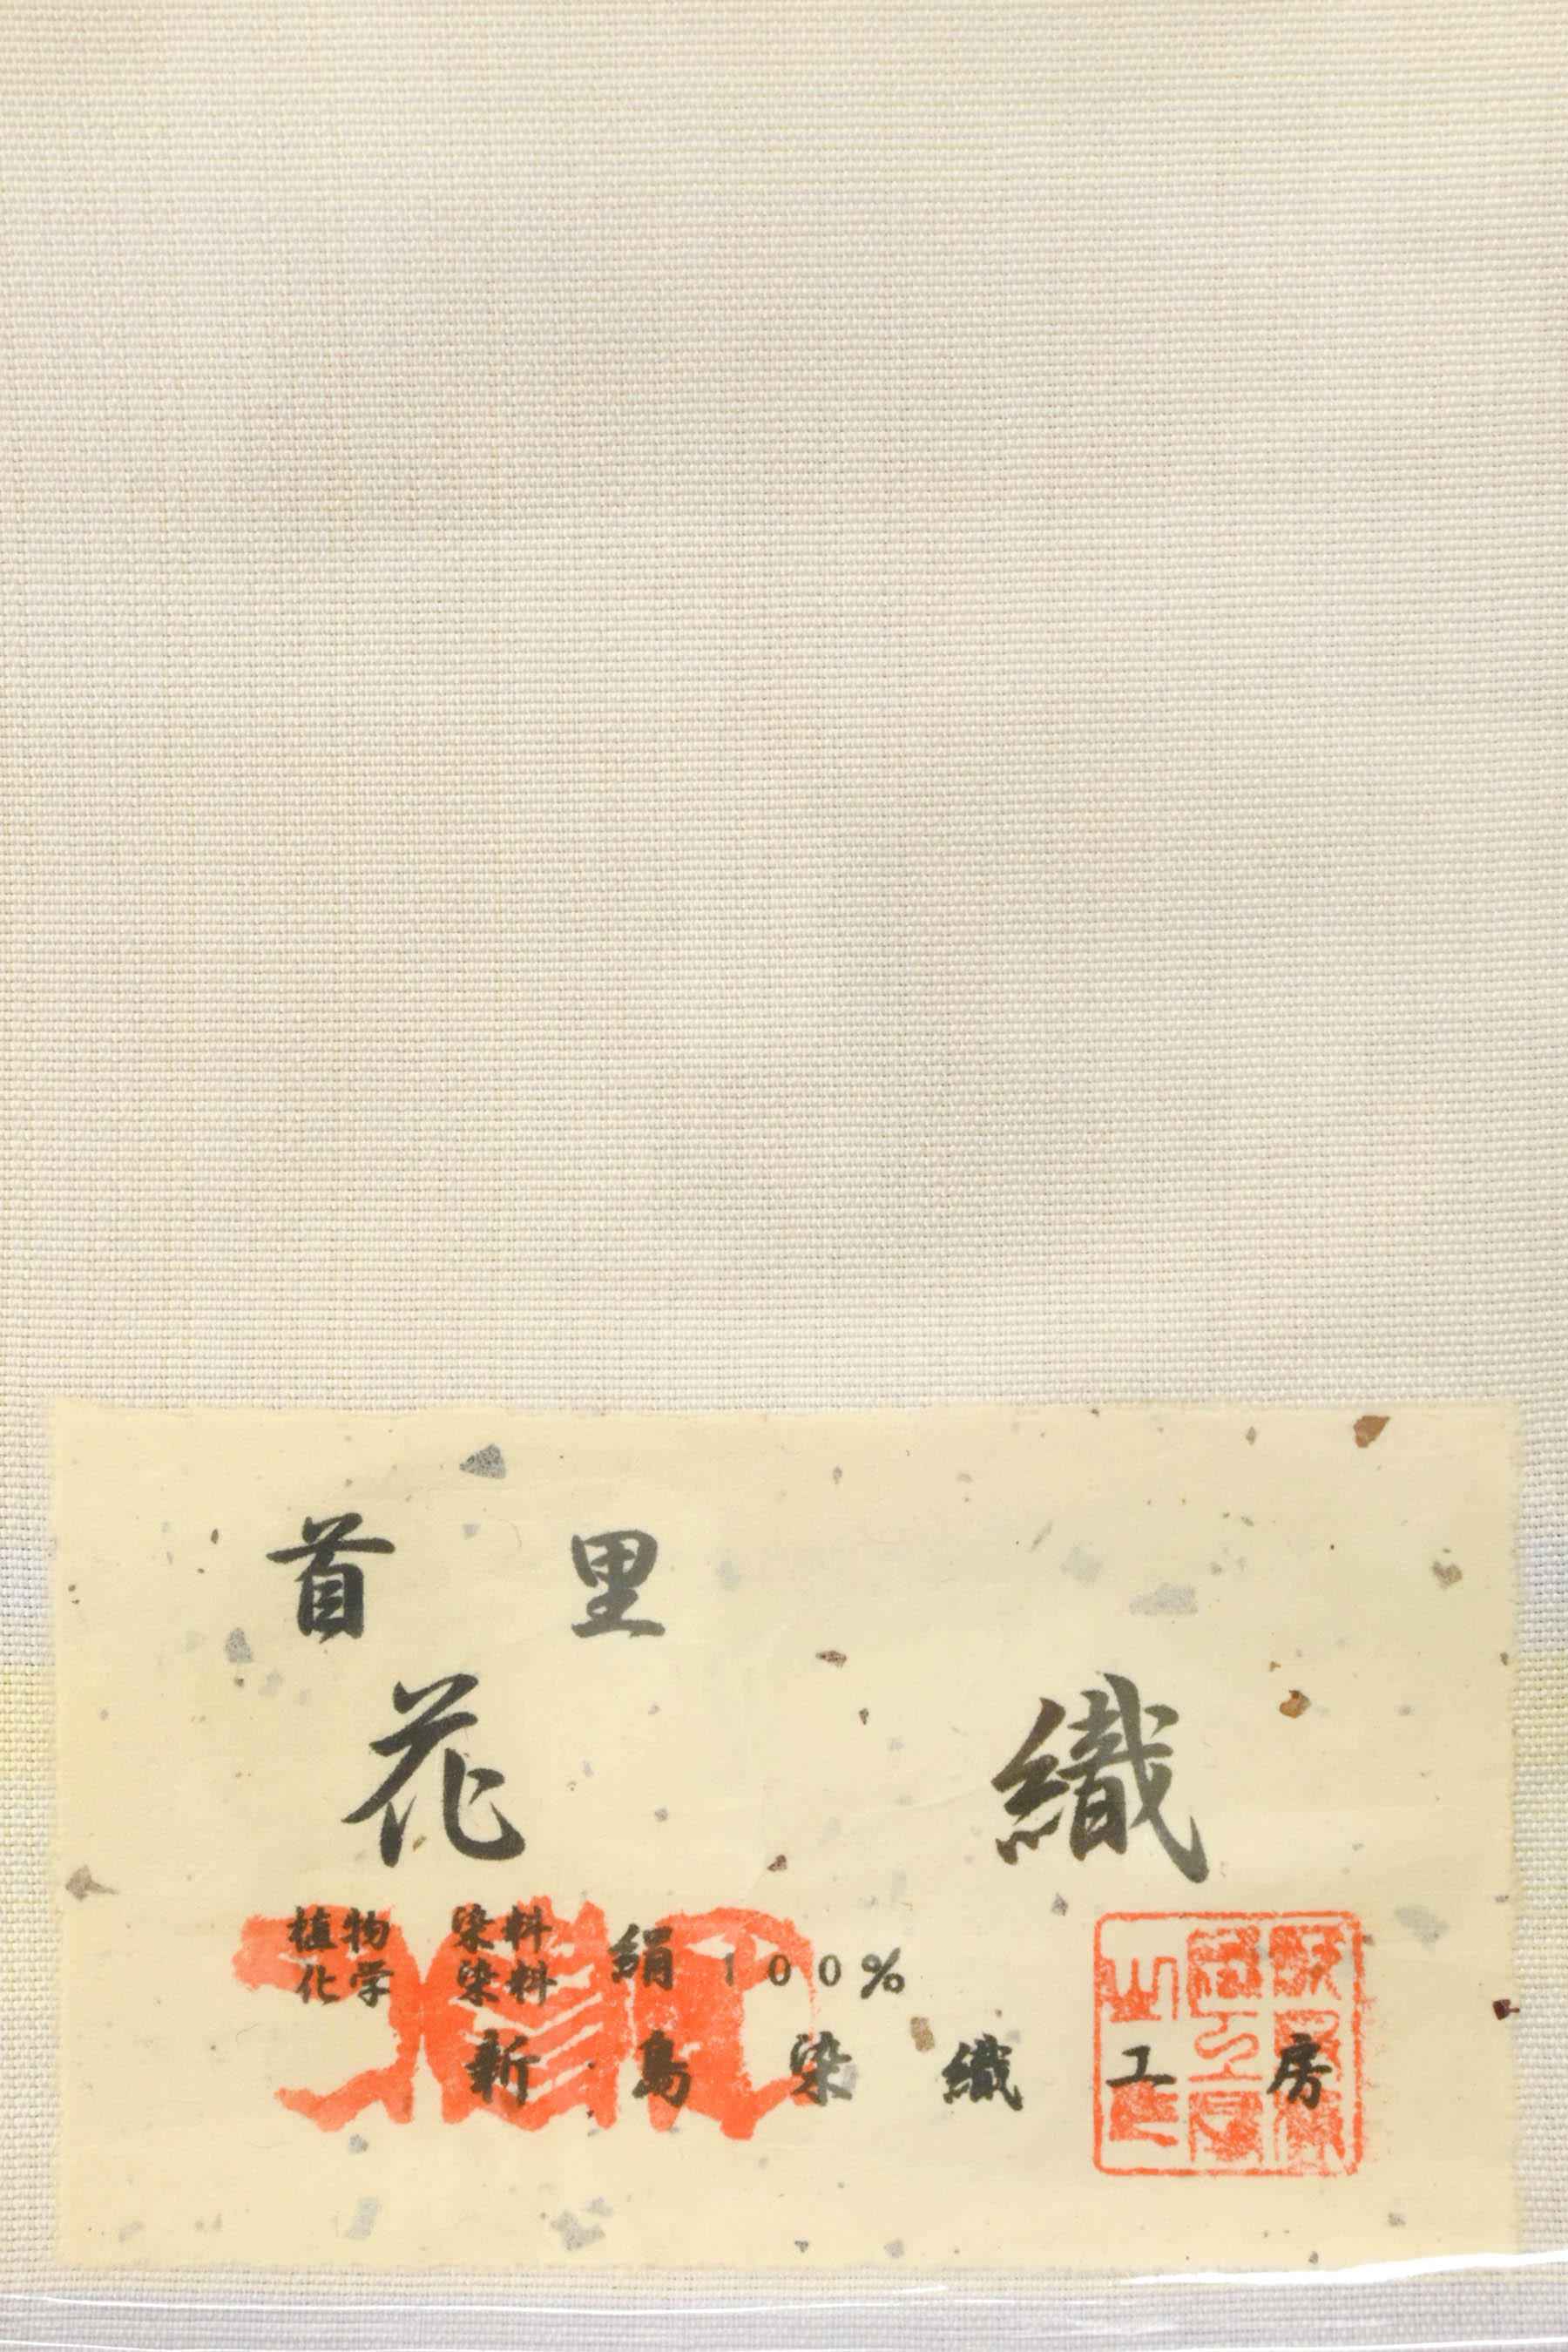 首里
花織
植物 染料
化学 染料
絹 100%
新島染織工房